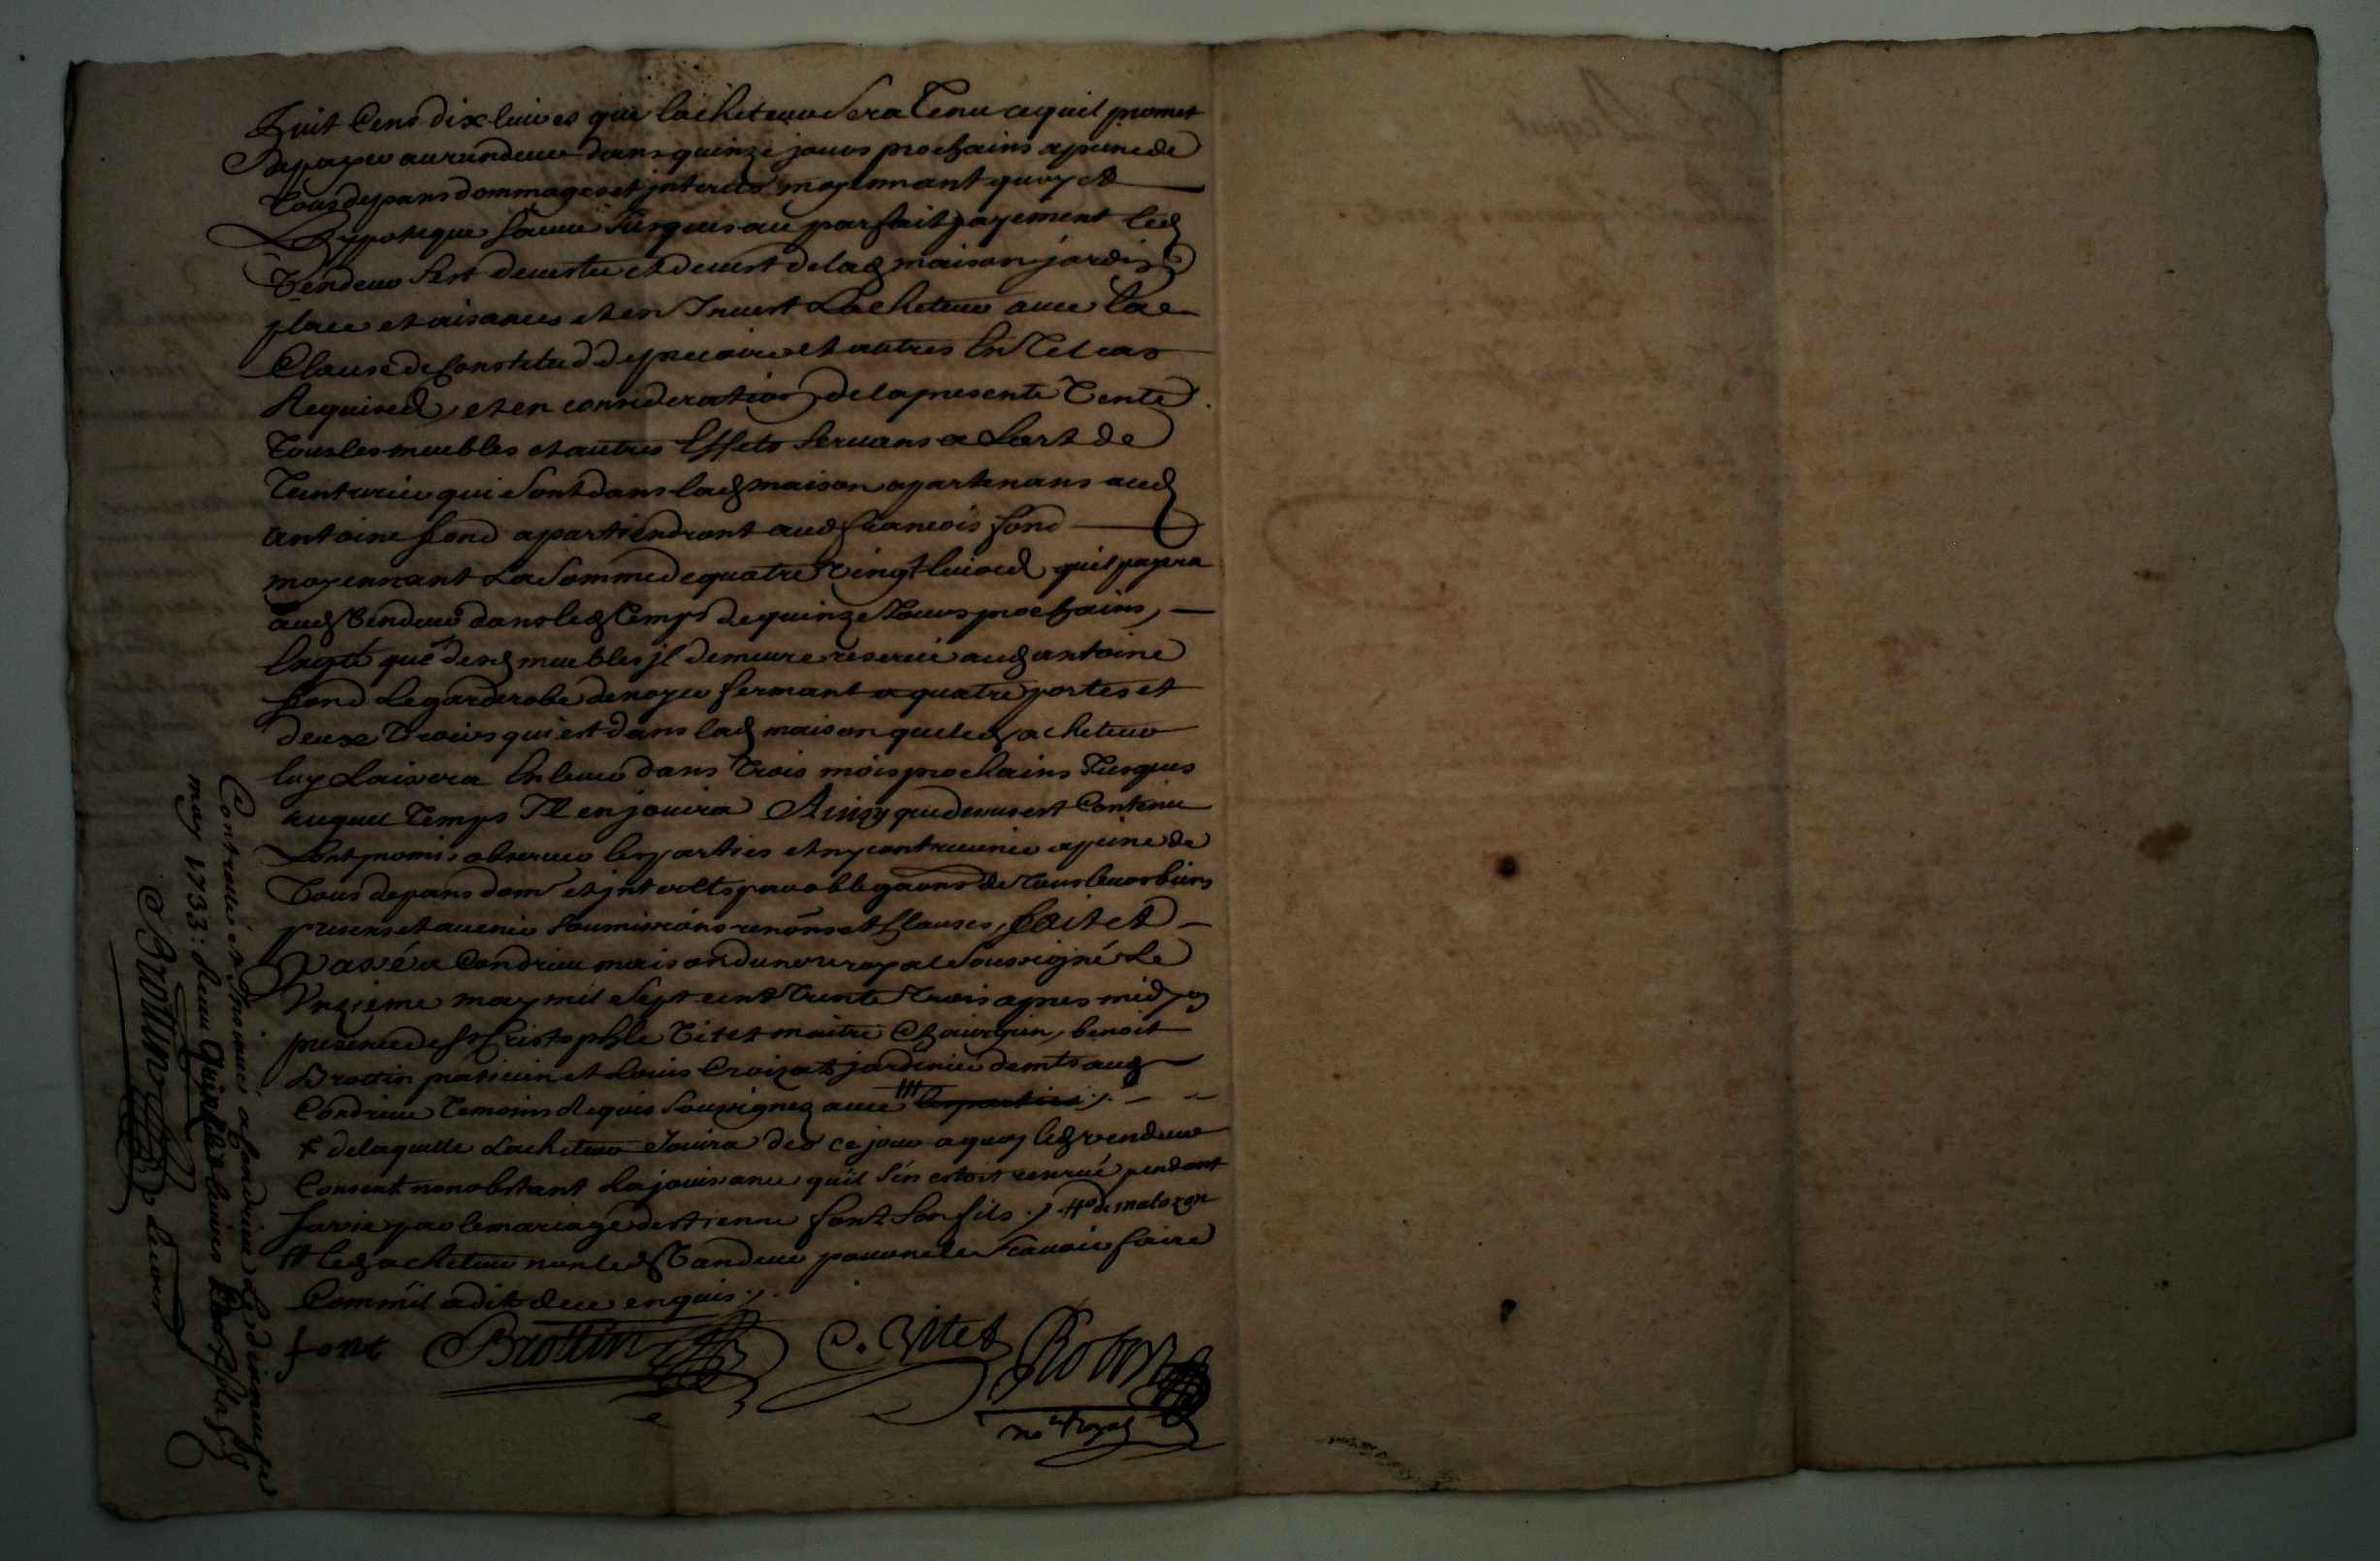 huit Cens dix livres que lacheteur sera tenu ce quil promet
de payer au vendeur dans quinze jours prochains a peine de
tous depans dommages et interets moyennant quoy et
Lhypoteque sauve Jusques au parfait payement led
Vendeur sest devestu et devest de lad maison jardin
place et aisances et en Invest Lacheteur avec la
Clause de Constitud de precaire et autres En tel cas
Requises, et en consideration de la presente Vente
Tous les meubles et autres Effets servans a Lart de
Teinturier qui sont dans lad maison apartenans aud
antoine fond apartiendront aud francois fond
moyennant La somme de quatre vingt livres quil payera
aud Vendeur dans led temps de quinze Jours prochains,
que desd meubles jl demeure reservé aud antoine
fond Le garderobe de noyer fermant a quatre portes et
deux Tiroirs qui est dans lad maison que led acheteur
luy Laissera Enlever dans Trois mois prochains Jusques
auquel Temps Il en jouira Ainsy que dessus est Contenu
Lont promis observer les parties et ny contrevenir a peine de
Tous depans dom et jnterets par obligaons de tous leurs biens
presens et avenir soumissions renons et Clauses, fait et
Passé a Condrieu maison du nore royal soussigné Le
Unzieme may mil sept cent trente trois apres midy en
presence de sr Cristophle Vitet maitre Chirurgien, benoit
Brottin praticien et Louis Croizat jardinier demts aud
Condrieu temoins Requis soussignez avec les parties ;.
+ de laquelle Lacheteur Jouira des ce jour a quoy led vendeur
Consent nonobstant La jouissance quil sen estoit reservé pendant
sa vie par le mariage destienne font son fils ;.
# led acheteur non led Vandeur pour ne le scavoir faire
Comm'il a dit de ce enquis ;.
font Brottin C. Vitet Robin
nre Royal
Controllé et Insinué a Condrieu Le dixneuf
may 1733: Receu Quinze livres
Brottin